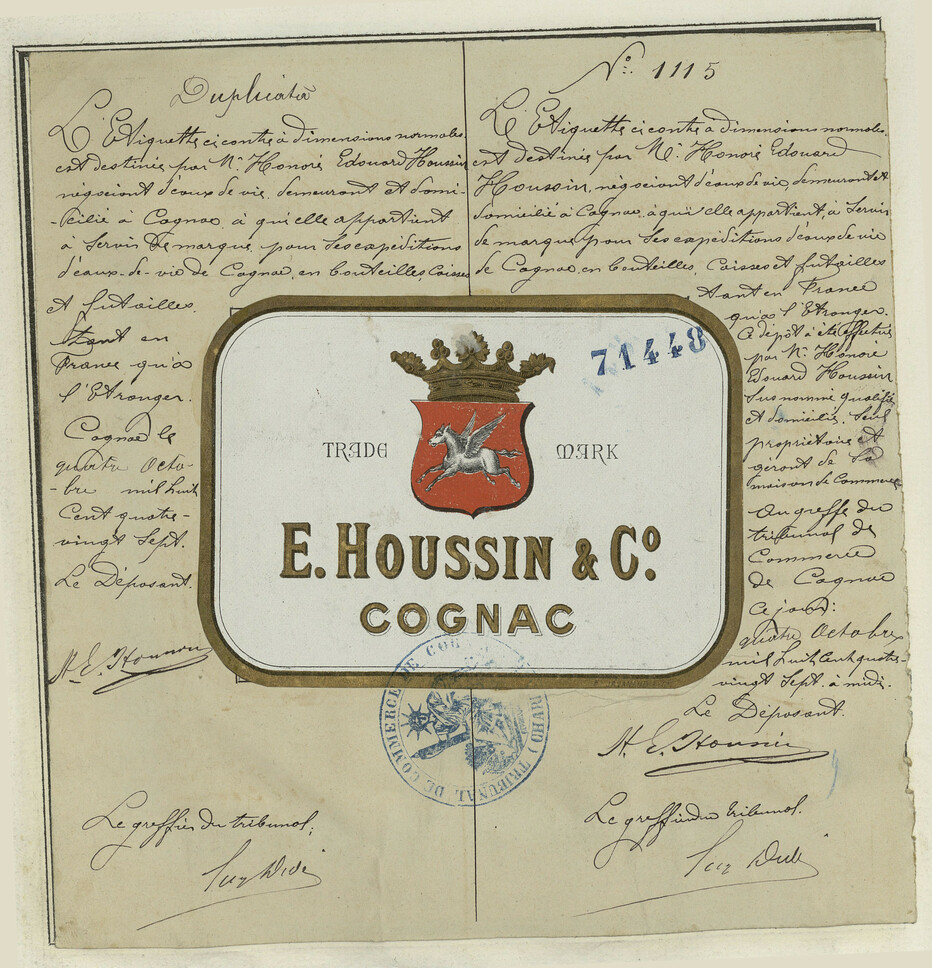 Duplicata
L'Etiquette ci contre à dimensions normales,
est destinée par Mr. Honoré Edouard Houssin
négociant d'eaux de vie, demeurant et domi-
-cilié à Cognac à qui elle appartient
à servir de marque pour ses expéditions
d'eaux-de-vie de Cognac, en bouteilles, caisses
et futailles
tant en
France qu'à
l'Etranger.
Cognac le
quatre Octo-
-bre mil huit
cent quatre-
vingt sept.
Le Déposant
H. E. Houssin
Le greffier du tribunal,
No. 1115
L'Etiquette ci contre à dimensions normales,
est destinée par Mr. Honoré Edouard
Houssin, négociant d'eaux de vie, demeurant et
domicilié à Cognac, à qui elle appartient, à servir
de marque pour ses expéditions d'eaux de vie
de Cognac, en bouteilles, caisses et futailles
tant en France
qu'à l'Etranger.
Ce dépôt a été effectué
par Mr. Honoré
Edouard Houssin
susnommé qualifié
et domicilié, seul
propriétaire et
gérant de sa
maison de commerce
au greffe du
tribunal de
Commerce
de Cognac
ce jour:
quatre Octobre
mil huit cent quatre-
vingt sept à midi.
Le Déposant.
H. E. Houssin
Le greffier du tribunal.
71448
TRADE MARK
E. HOUSSIN & Co.
COGNAC
TRIBUNAL DE COMMERCE DE COG